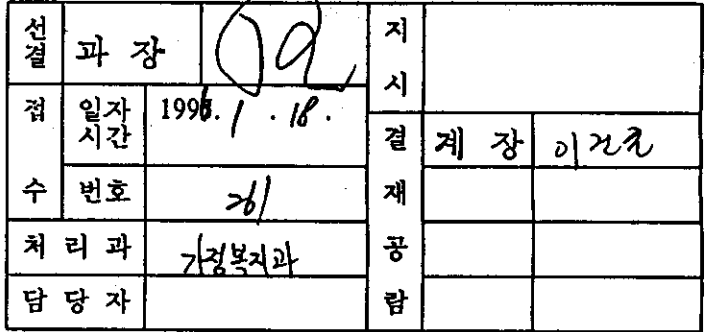 선결 과 장
지시
접수 일자 시간 1996. 1 . 18 .
결재 계 장
번호 261
처 리 과 가정복지과
공람
담 당 자